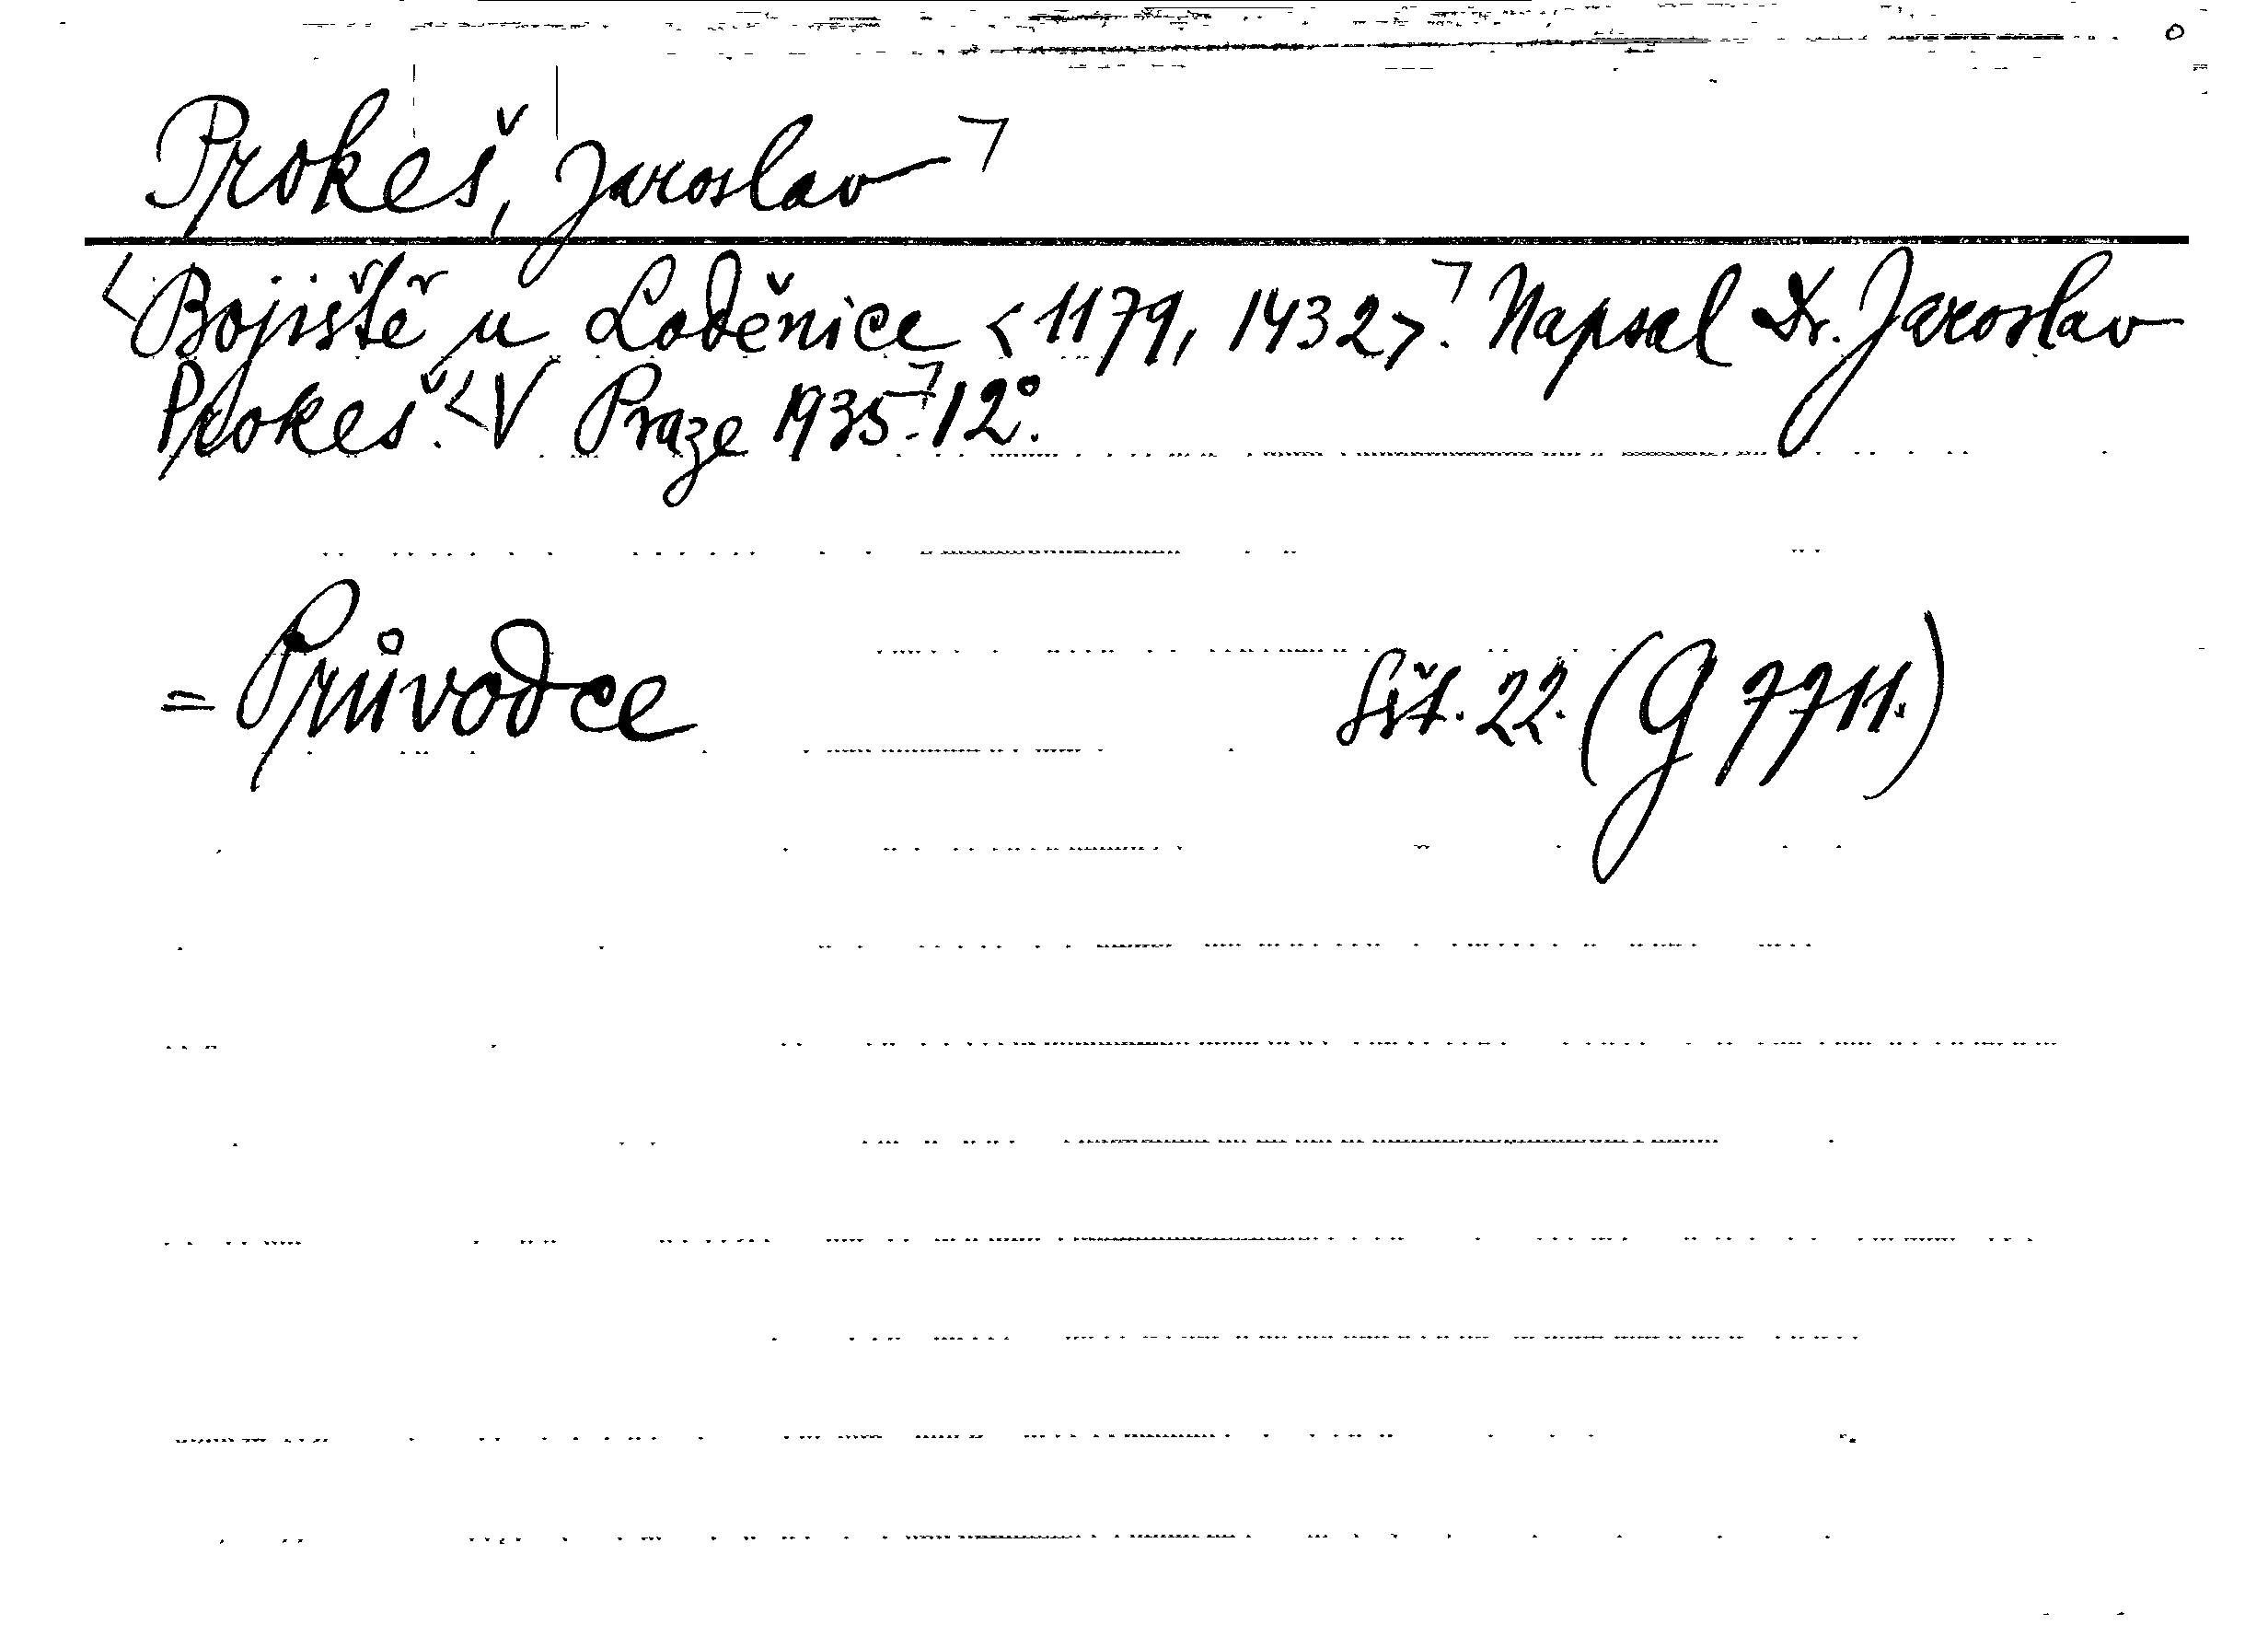 Prokeš, Jaroslav
Bojiště u Loděnice <1179, 1432>. Napsal Dr. Jaroslav
Prokeš. V Praze 1935. 12°.
= Průvodce sšt. 22. (G 7711.)